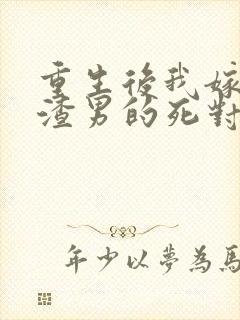 重生後我嫁
渣男的死對
年少以夢為馬